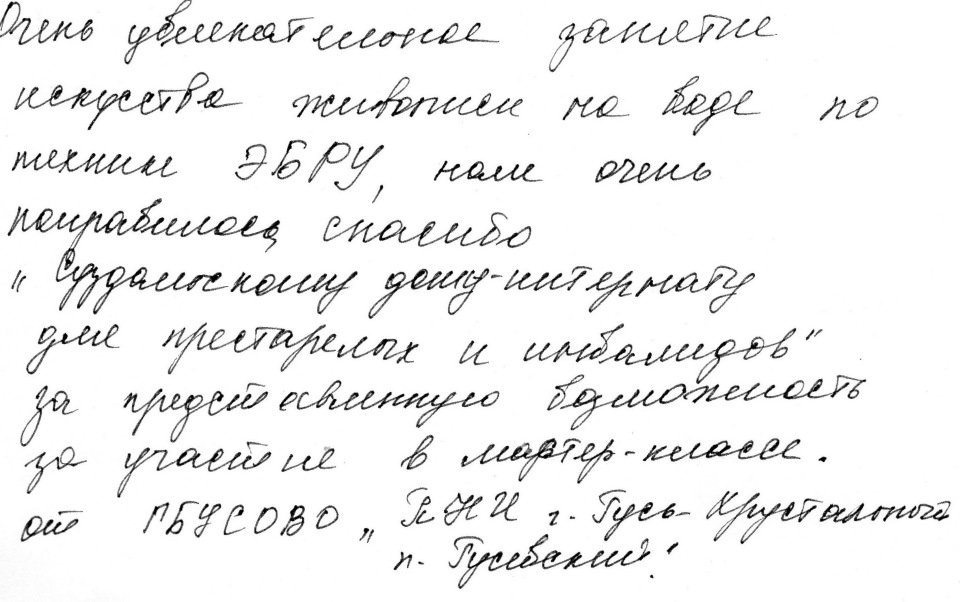 Очень увлекательное занятие
искусства живописи на воде по
технике ЭБРУ, нам очень
понравилось, спасибо
„Суздальскому дому-интернату
для престарелых и инвалидов"
за предоставленную возможность
за участие в мастер-классе.
от ГБУСОВО „ПНИ г. Гусь-Хрустальный
п. Гусевский".